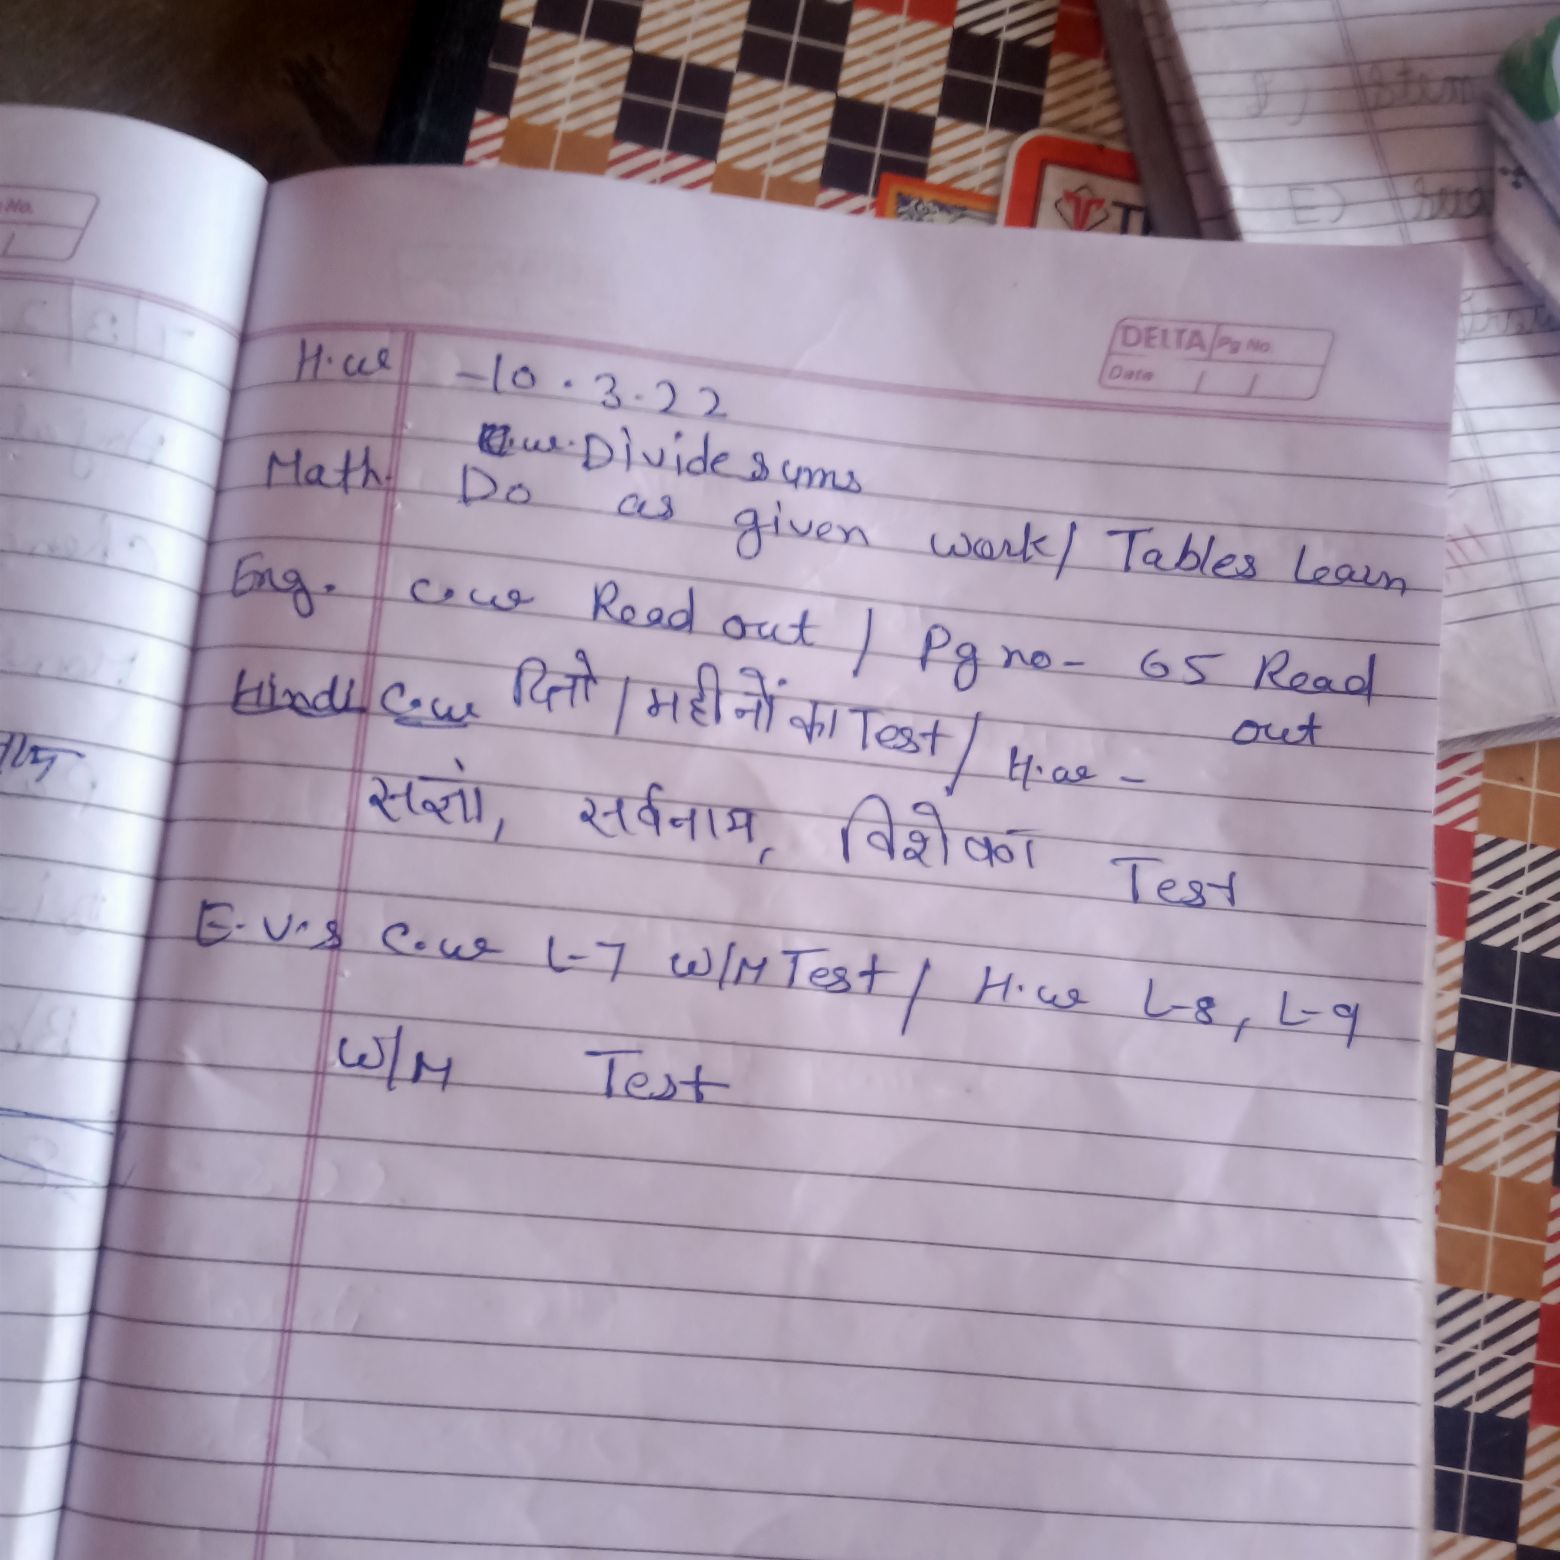 No.
DELTA Pg No.
Date / /
H.w -10.3.22
c.w. Divide sums
Math. Do as given work/ Tables Learn
Eng. c.w Read out / Pg no- 65 Read
out
Hindi C.w दिनो / महीनों का Test / H.w -
सज्ञां, सर्वनाम, विशेषण Test
E.V.S C.w L-7 W/M Test / H.w L-8, L-9
W/M Test